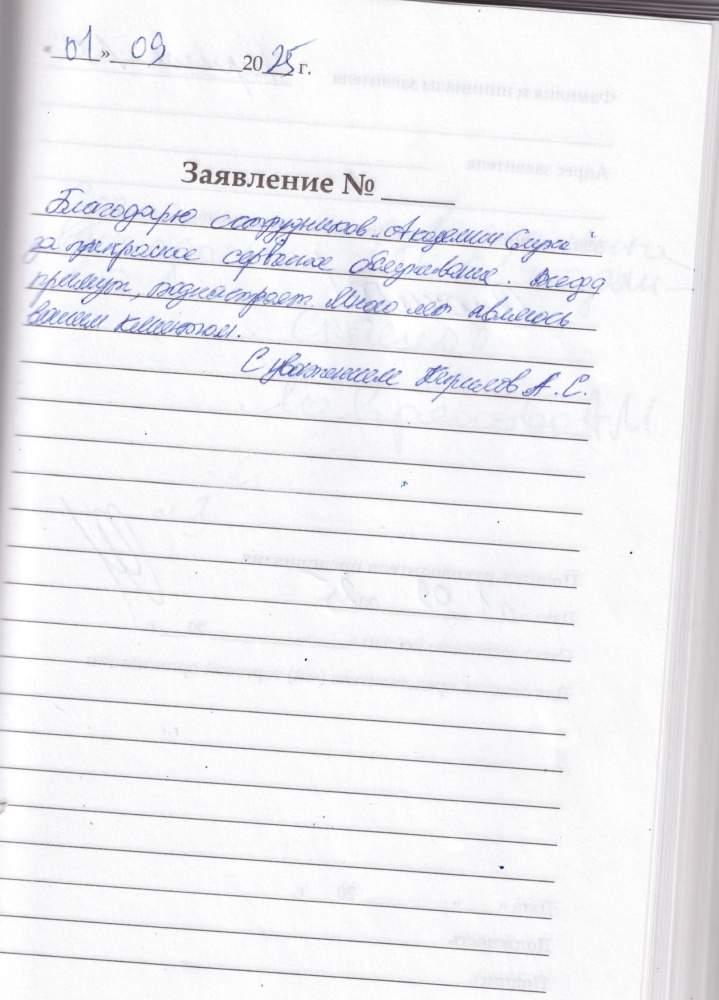 01» 09 2025 г.
Заявление №
Благодарю сотрудников „Академии Слуха"
за прекрасное сервисное обслуживание. Всегда
примут, поднастроят. Много лет являюсь
вашим клиентом.
С уважением А.С.